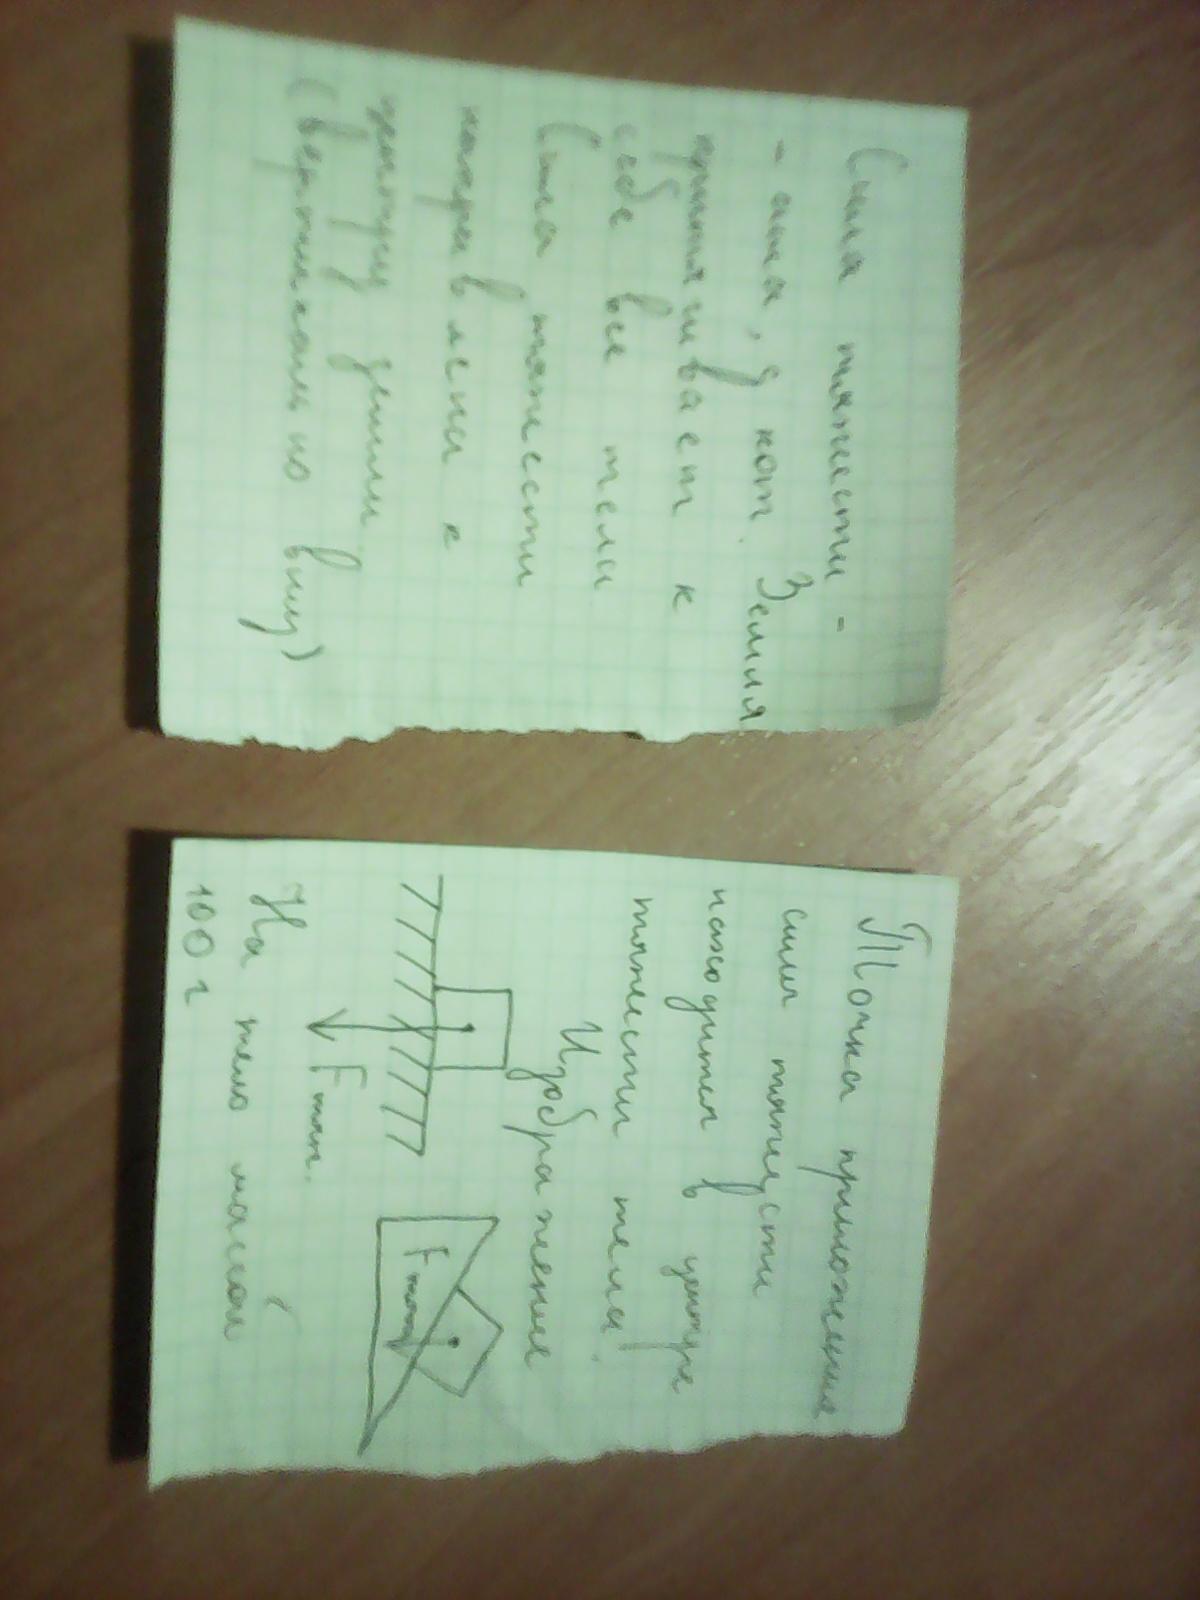 Сила тяжести -
- сила, с кот. Земля
притягивает к
себе все тела
Сила тяжести
направлена к
центру земли
(вертикально вниз)
Точка приложения
силы тяжести
находится в центре
тяжести тела.
Изображение
Fтяж.
Fтяж
На тело массой
100 г